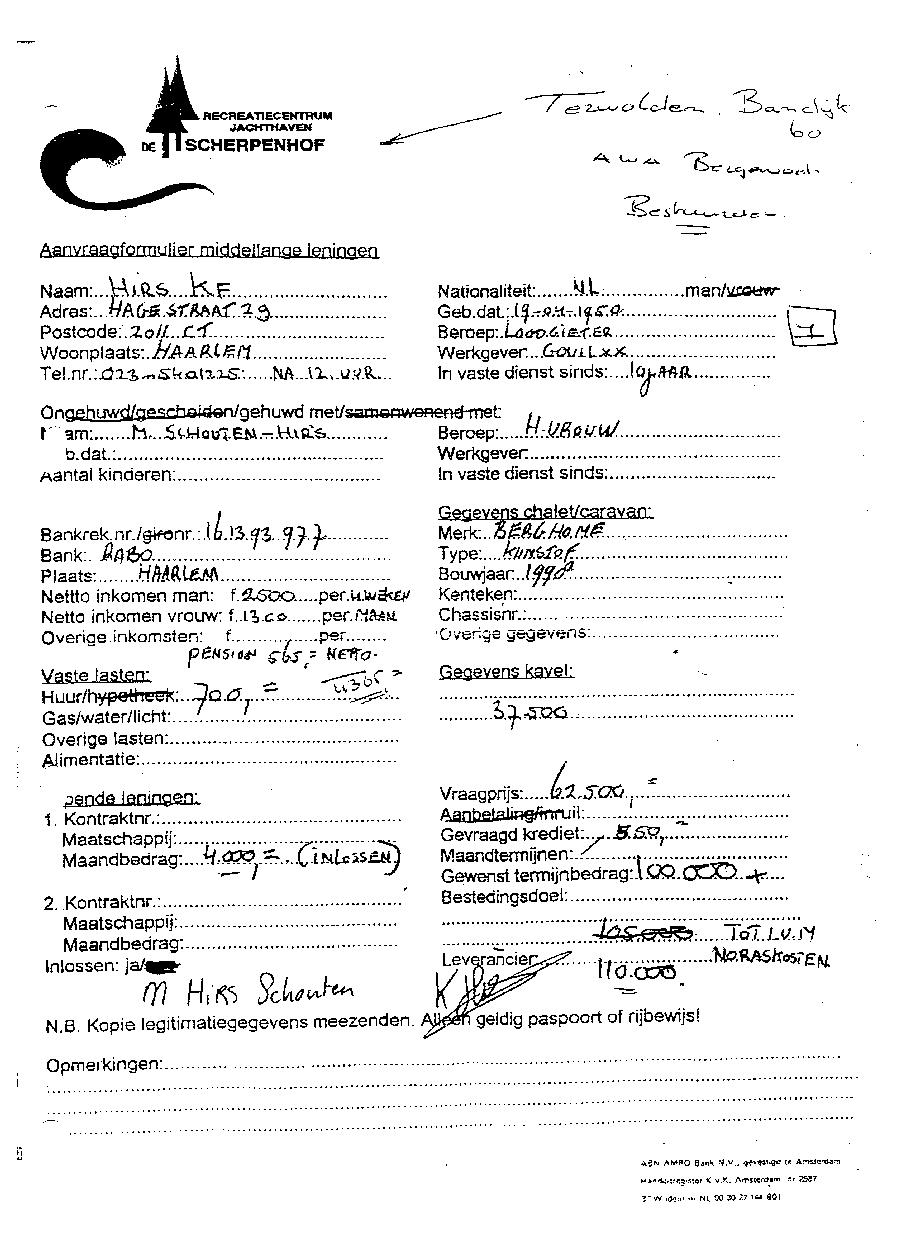 RECREATIECENTRUM
JACHTHAVEN
DE SCHERPENHOF
Terwolden. Bandijk
60
Aanvraagformulier middellange leningen
Naam: HIRS KF
Adres: HAGESTRAAT 29
Postcode: 2011 CT
Woonplaats: HAARLEM
Tel.nr.: 023-5401225 NA 12 UUR
Nationaliteit: NL man/vrouw
Geb.dat.: 19-07-1950
Beroep: LOODGIETER
Werkgever:
In vaste dienst sinds: 10 JAAR
1
Ongehuwd/gescheiden/gehuwd met/samenwonend met:
am: M. SCHOUTEN-HIRS
b.dat.:
Aantal kinderen:
Beroep: H-VROUW
Werkgever:
In vaste dienst sinds:
Bankrek.nr./gironr.: 16.13.93.977
Bank: RABO
Plaats: HAARLEM
Nettto inkomen man: f. 2500 per 4 WEKEN
Netto inkomen vrouw: f. 1300 per MAAN
Overige inkomsten: f. per
PENSION 565,= NETTO.
4365=
Gegevens chalet/caravan:
Merk: BERGHOME
Type: KUNSTOF
Bouwjaar: 1990
Kenteken:
Chassisnr.:
Overige gegevens:
Vaste lasten:
Huur/hypotheek: 700,=
Gas/water/licht:
Overige lasten:
Alimentatie:
Gegevens kavel:
37.500
pende leningen:
1. Kontraktnr.:
Maatschappij:
Maandbedrag: 4.000,= (INLOSSEN)
2. Kontraktnr.:
Maatschappij:
Maandbedrag:
Inlossen: ja/
Vraagprijs: 62.500,=
Aanbetaling/inruil:
Gevraagd krediet: 550,-
Maandtermijnen:
Gewenst termijnbedrag: 100.000 +
Bestedingsdoel:
105.000 TOT I.V.M
Leverancier: 110.000 NORASKOSTEN
M HIRS Schouten
N.B. Kopie legitimatiegegevens meezenden. Alleen geldig paspoort of rijbewijs!
Opmerkingen:
ABN AMRO Bank N.V., gevestigd te Amsterdam
Handelsregister K.v.K. Amsterdam, nr 2587